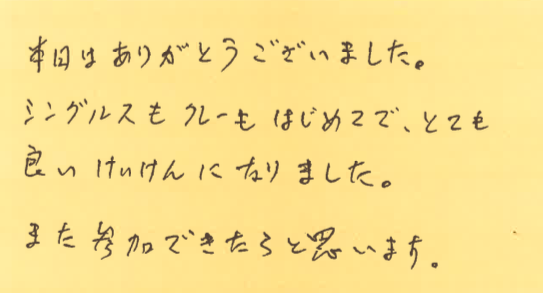 本日はありがとうございました。
シングルスもクレーもはじめてで、とても
良いけいけんになりました。
また参加できたらと思います。